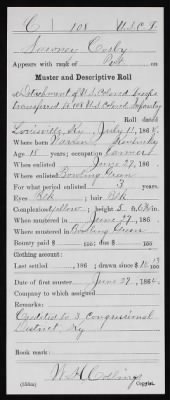 C | 108 | U.S.C.T.
Cosby
Appears with rank of Pvt
Muster and Descriptive Roll
of Detachment of U.S. Colored troops
transferred to 108 U.S. Colored Infantry
Roll dated
Louisville, Ky July 11, 186
Where born Kentucky
Age 18 years; occupation Farmer
When enlisted June 27, 186 .
Where enlisted Bowling Green
For what period enlisted 3 years.
Eyes Blk ; hair Blk
Complexion Yellow ; height 5 ft. in.
When mustered in June 27, 186 .
Where mustered in Bowling Green
Bounty paid $ 100; due $ 100
Clothing account:
Last settled , 186 ; drawn since $ 100
Date of first muster June 27, 186
Company to which assigned
Remarks:
Credited to 3, Congressional
District, Ky
Book mark:
Copyist.